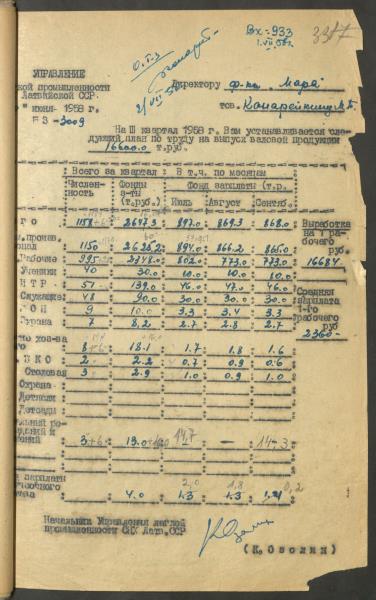 Вх-933
1.VII.58г.
3317
О.Т.З
2/VII-58
УПРАВЛЕНИЕ
кой промышленности
Латвийской ССР.
" июня- 1958 г.
№ 3-3009
Директору ф-ки "Мара"
тов. Канарейкину
На III квартал 1958 г. Вам устанавливается сле-
дующий план по труду на выпуск валовой продукции
16600.0 т.руб.
Всего за квартал : В т.ч. по месяцам
Числен- Фонды Фонд зарплаты (т.р.
ность з-ты
(т.руб.) Июль Август Сентяб.
го 1158+ 2647.3 897.0 869.3 868.0 Выработка
м.произв. на 1 ра-
нал 1150 2625.2 894.0 866.2 865.0 бочего
Рабочие 995 2348.0 802.0 773.0 773.0 руб.
Ученики 40 30.0 10.0 10.0 10.0 16684
ИТР 51 139.0 46.0 47.0 46.0
Служащие 48 90.0 30.0 30.0 30.0 Средняя
МОП 9 10.0 3.3 3.4 3.3 зарплата
Охрана 7 8.2 2.7 2.8 2.7 1-го
рабочего
руб
2360-
но хоз-ва
го 8+6 18.1 1.7 1.8 1.6
ЖКО 2 2.2 0.7 0.9 0.6
Столовая 3 2.9 1.0 0.9 1.0
Охрана
Детясли
Детсады
льный ре-
зданий и
ений 3+6 13.0 14.7 — 14.3
зарплаты
чебного 2,0 1,8 0,2
4.0 1.3 1.3
Начальник Управления легкой
промышленности СНХ Латв.ССР
(К.Озолин)